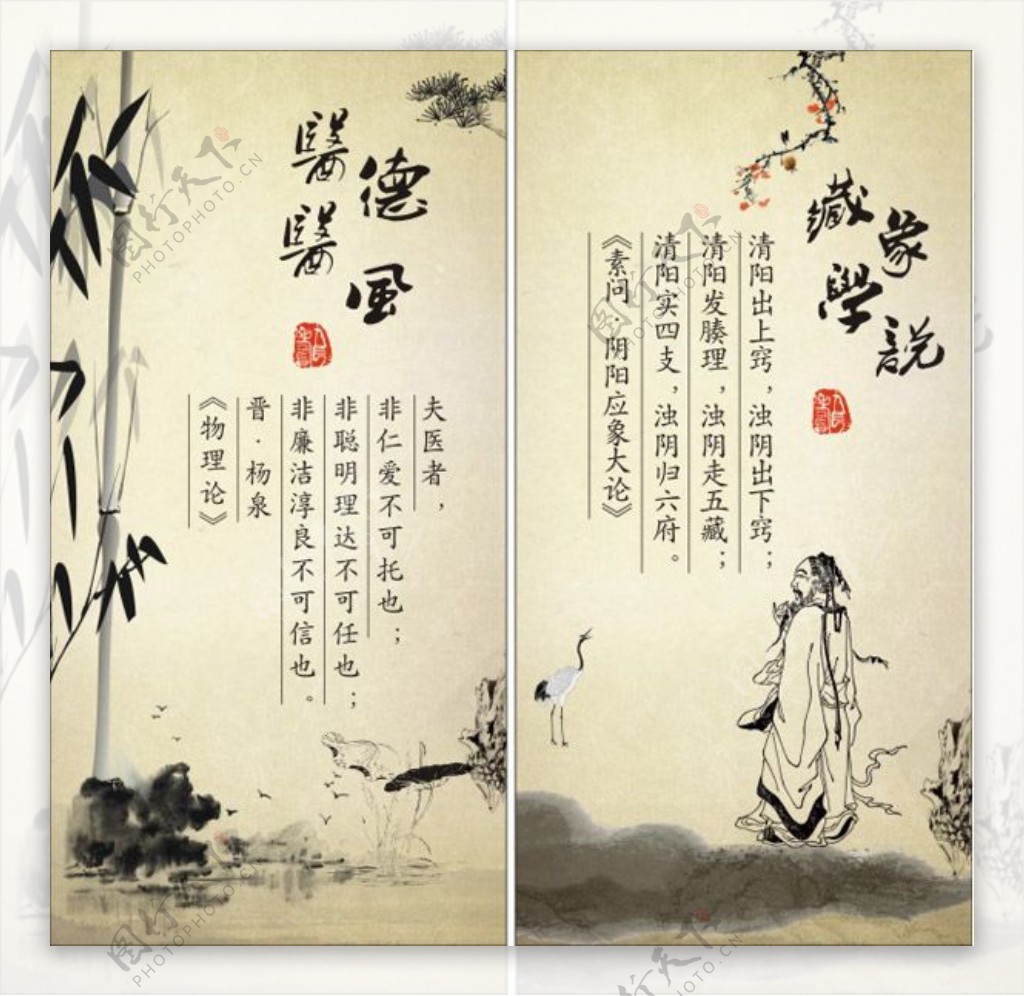 醫德
醫風
夫医者，
非仁爱不可托也；
非聪明理达不可任也；
非廉洁淳良不可信也。
晋·杨泉
《物理论》
藏象
學說
清阳出上窍，浊阴出下窍；
清阳发腠理，浊阴走五藏；
清阳实四支，浊阴归六府。
《素问·阴阳应象大论》
图行天下
PHOTOPHOTO.CN
图行天下
PHOTOPHOTO.CN
图行天下
PHOTOPHOTO.CN
图行天下
PHOTOPHOTO.CN